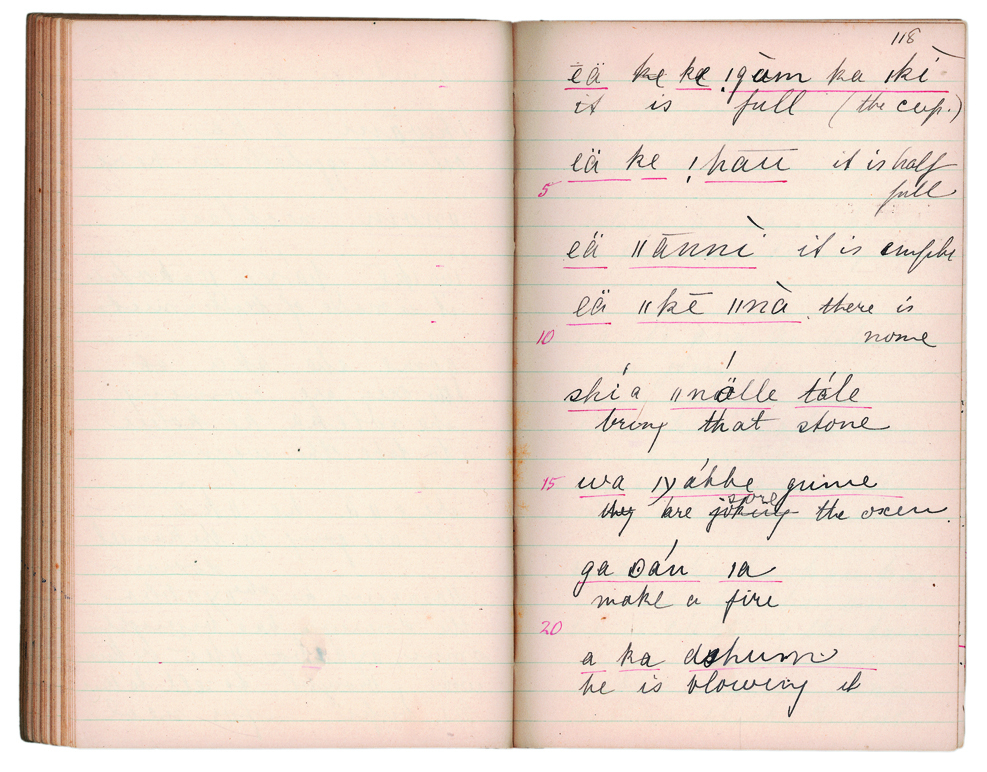 118
ēä ke ke !gàm ka ǀkì
it is full (the cup.)
ēä ke !hāū it is half
5
full
ēä ǁānnì it is
ēä ǁkē ǁnà there is
10
none
skí a ǁnälle tále
bring that stone
15 wa ǀyákke guine
they are the oxen
ga ʘán ǀa
make a fire
20
a ka dshum
he is blowing it